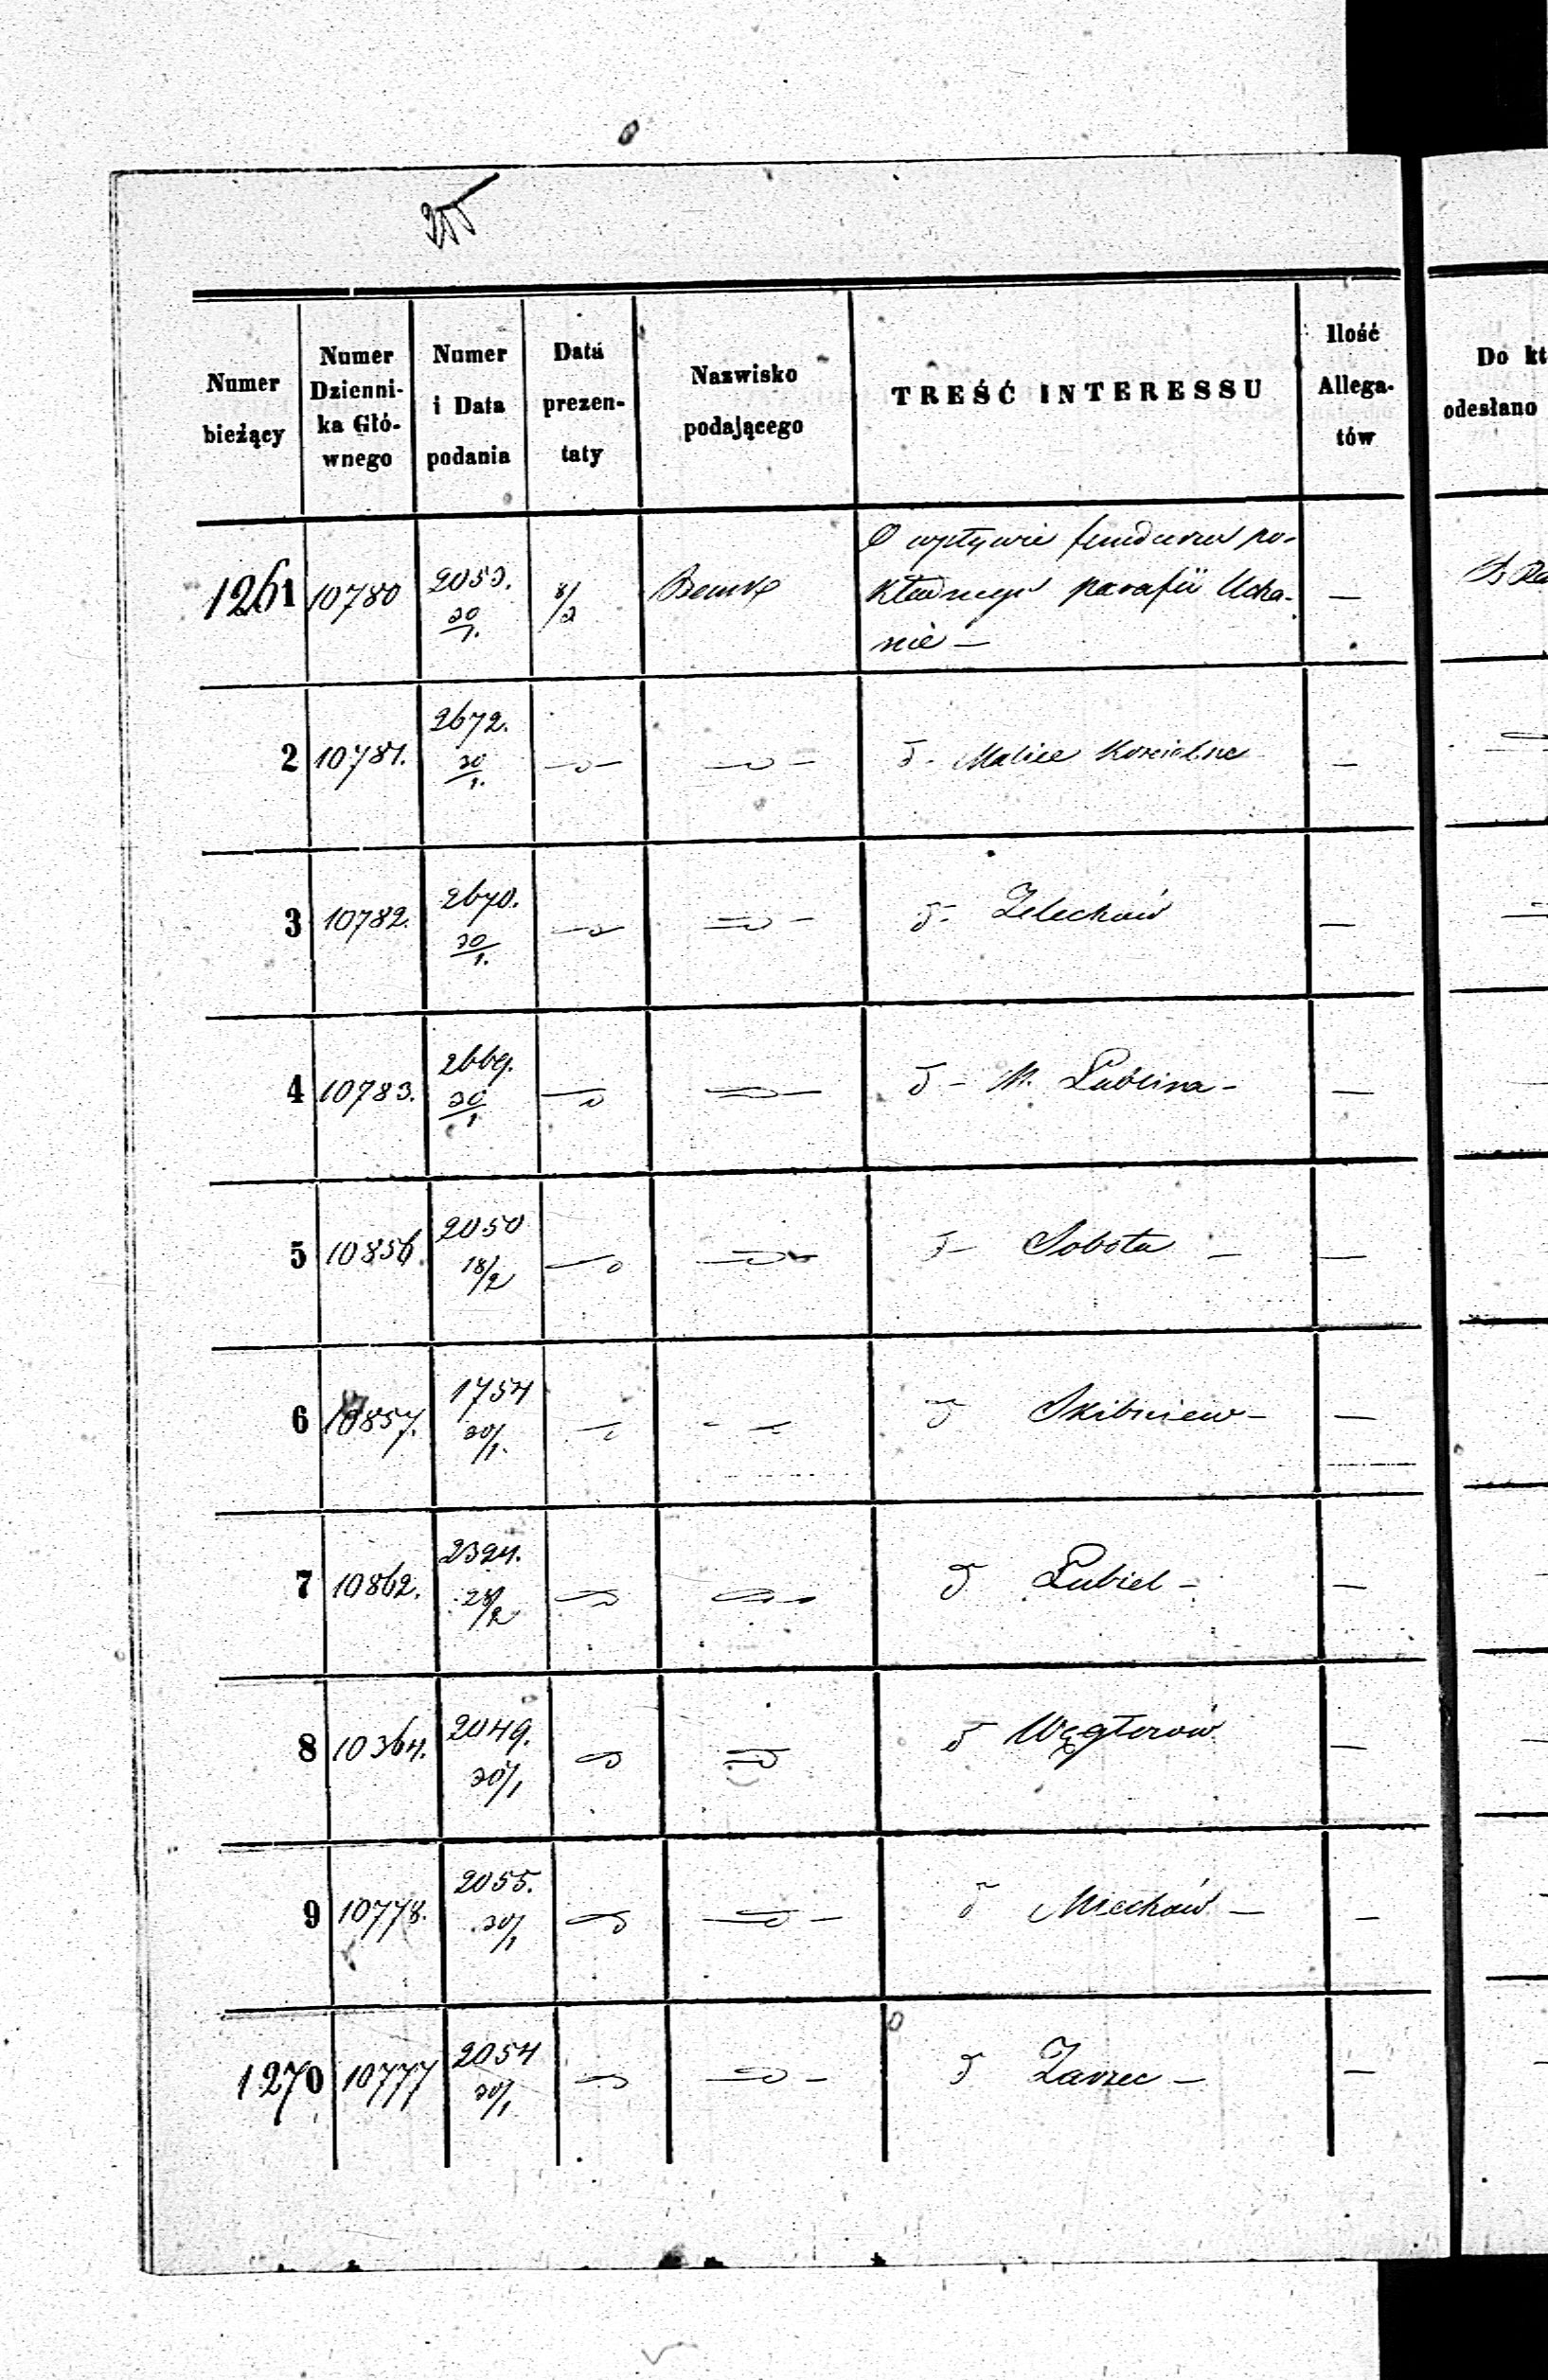 255
Numer bieżący | Numer Dzienni- ka Głó- wnego | Numer i Data podania | Data prezen- taty | Nazwisko podającego | TREŚĆ INTERESSU | Ilość Allega- tów | Do kt odesłano
1261 | 10780 | 2053. 30/1. | 8/2 | Bank | O wpływie funduszu po-
kładnego parafii Ucha-
nie — | —
2 | 10781. | 2672. 30/1. | —"— | —"— | d- Malice Kościelne | —
3 | 10782. | 2670. 30/1. | —"— | —"— | d- Żelechów | —
4 | 10783. | 2669. 30/1 | —"— | —"— | d- M. Lublina - | —
5 | 10856. | 2050 18/2 | —"— | —"— | d- Sobota — | —
6 | 10857. | 1754 30/1. | —"— | —"— | d Skibniew - | —
7 | 10862. | 2324. 28/2 | —"— | —"— | d Lubiel - | —
8 | 10364. | 2049. 30/1 | —"— | —"— | d Węgłerow | —
9 | 10778. | 2055. 30/1 | —"— | —"— | d Miechów — | —
1270 | 10777 | 2054 30/1 | —"— | —"— | d Zarzec — | —